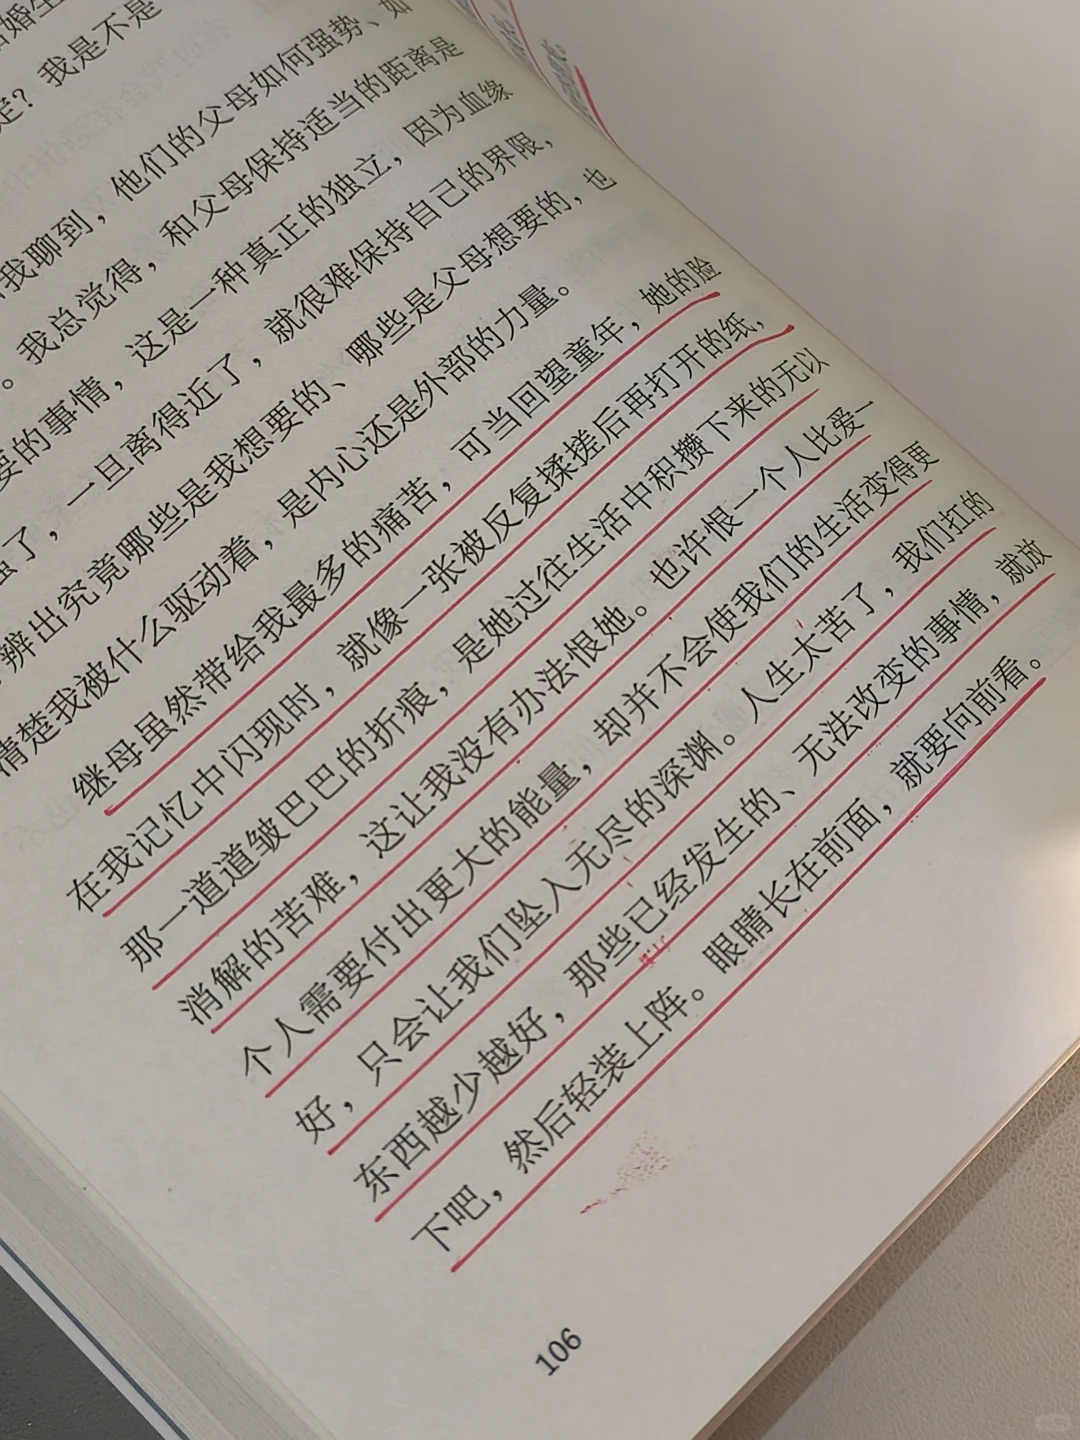 婚生
定？我是不是
我聊到，他们的父母如何强势、如
。我总觉得，和父母保持适当的距离是
要的事情，这是一种真正的独立，因为血缘
了，一旦离得近了，就很难保持自己的界限，
辨出究竟哪些是我想要的、哪些是父母想要的，也
清楚我被什么驱动着，是内心还是外部的力量。
继母虽然带给我最多的痛苦，可当回望童年，她的脸
在我记忆中闪现时，就像一张被反复揉搓后再打开的纸，
那一道道皱巴巴的折痕，是她过往生活中积攒下来的无以
消解的苦难，这让我没有办法恨她。也许恨一个人比爱一
个人需要付出更大的能量，却并不会使我们的生活变得更
好，只会让我们坠入无尽的深渊。人生太苦了，我们扛的
东西越少越好，那些已经发生的、无法改变的事情，就放
下吧，然后轻装上阵。眼睛长在前面，就要向前看。
106